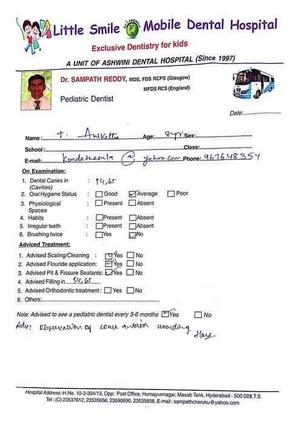 Little Smile Mobile Dental Hospital
Exclusive Dentistry for kids
A UNIT OF ASHWINI DENTAL HOSPITAL (Since 1997)
Dr. SAMPATH REDDY, MDS, FDS RCPS (Glasgow)
MFDS RCS (England)
Pediatric Dentist
Date:
Name: T. Age: 8yr Sex:
School: Class:
E-mail: @ yahoo.com Phone: 967648354
On Examination:
1. Dental Caries in : 74,65
(Cavities)
2. Oral Hygiene Status : Good Average Poor
3. Physiological : Present Absent
Spaces
4. Habits : Present Absent
5. Irregular teeth : Present Absent
6. Brushing twice : Yes No
Adviced Treatment:
1. Advised Scaling/Cleaning : Yes No
2. Advised Flouride application: Yes No
3. Advised Pit & Fissure Sealants: Yes No
4. Advised Filling in 54,65
5. Advised Orthodontic treatment : Yes No
6. Others:
Note: Advised to see a pediatric dentist every 3-6 months Yes No
Adv: observation of some anterior
Hospital Address: H.No. 10-3-304/13, Opp: Post Office, Humayunnagar, Masab Tank, Hyderabad - 500 028.T.S.
Tel: (C) 23537812, 23535656, 23590690, 23535858, E-mail : sampathcheruku@yahoo.com